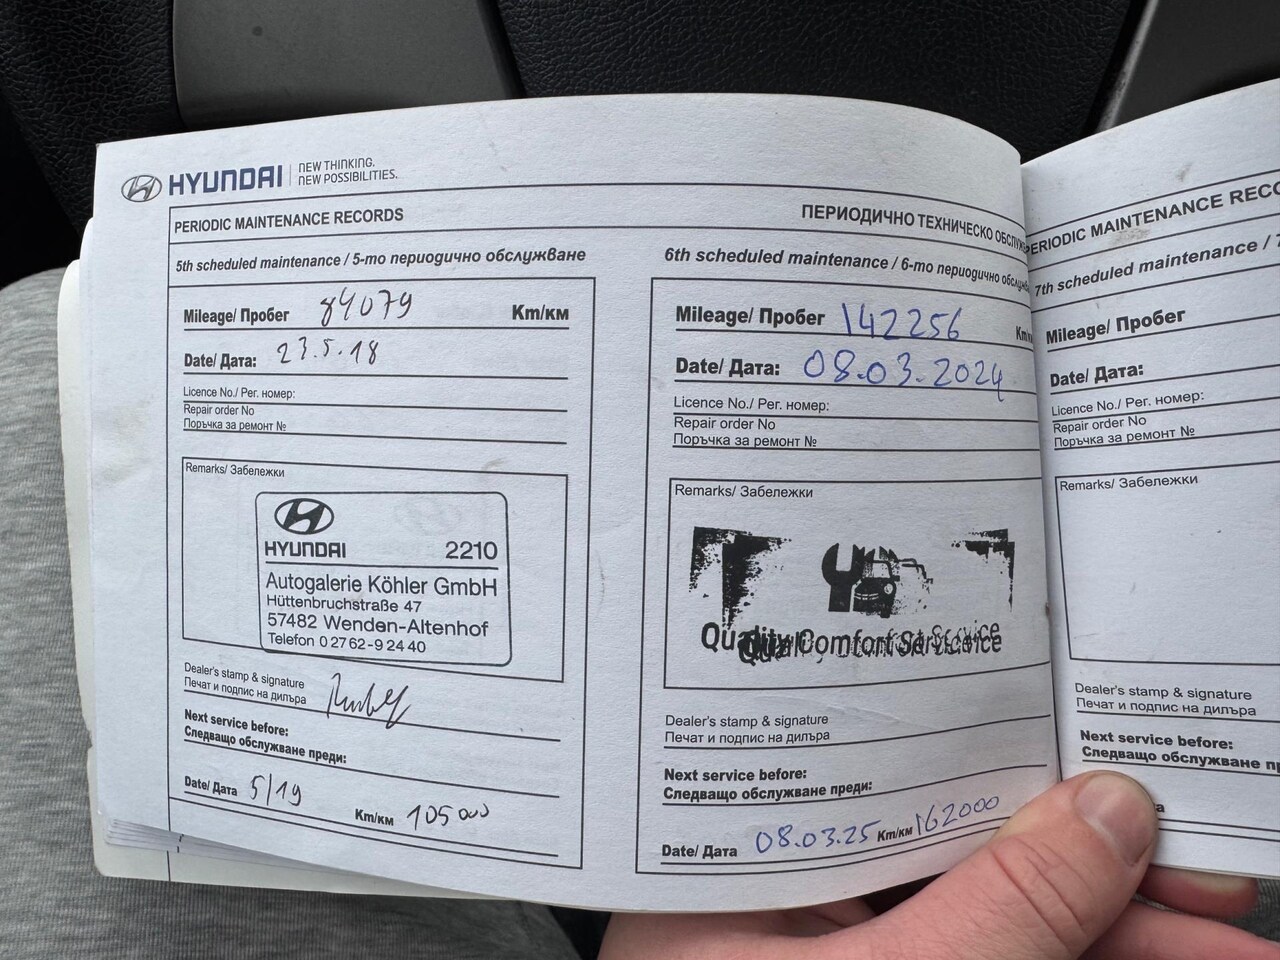 HYUNDAI
NEW THINKING.
NEW POSSIBILITIES.
PERIODIC MAINTENANCE RECORDS
ПЕРИОДИЧНО ТЕХНИЧЕСКО
5th scheduled maintenance / 5-то периодично обслужване
Mileage/ Пробег 84079 Km/км
Date/ Дата: 23.5.18
Licence No./ Рег. номер:
Repair order No
Поръчка за ремонт №
Remarks/ Забележки
HYUNDAI 2210
Autogalerie Köhler GmbH
Hüttenbruchstraße 47
57482 Wenden-Altenhof
Telefon 0 27 62-9 24 40
Dealer's stamp & signature
Печат и подпис на дилъра
Next service before:
Следващо обслужване преди:
Date/ Дата 5/19
Km/км 105000
6th scheduled maintenance / 6-то периодично
Mileage/ Пробег 142256
Date/ Дата: 08.03.2024
Licence No./ Рег. номер:
Repair order No
Поръчка за ремонт №
Remarks/ Забележки
Quality Comfort Service
Dealer's stamp & signature
Печат и подпис на дилъра
Next service before:
Следващо обслужване преди:
Date/ Дата 08.03.25 Km/км 162000
PERIODIC MAINTENANCE
7th scheduled maintenance /
Mileage/ Пробег
Date/ Дата:
Licence No./ Рег. номер:
Repair order No
Поръчка за ремонт №
Remarks/ Забележки
Dealer's stamp & signature
Печат и подпис на дилъра
Next service before:
Следващо обслужване